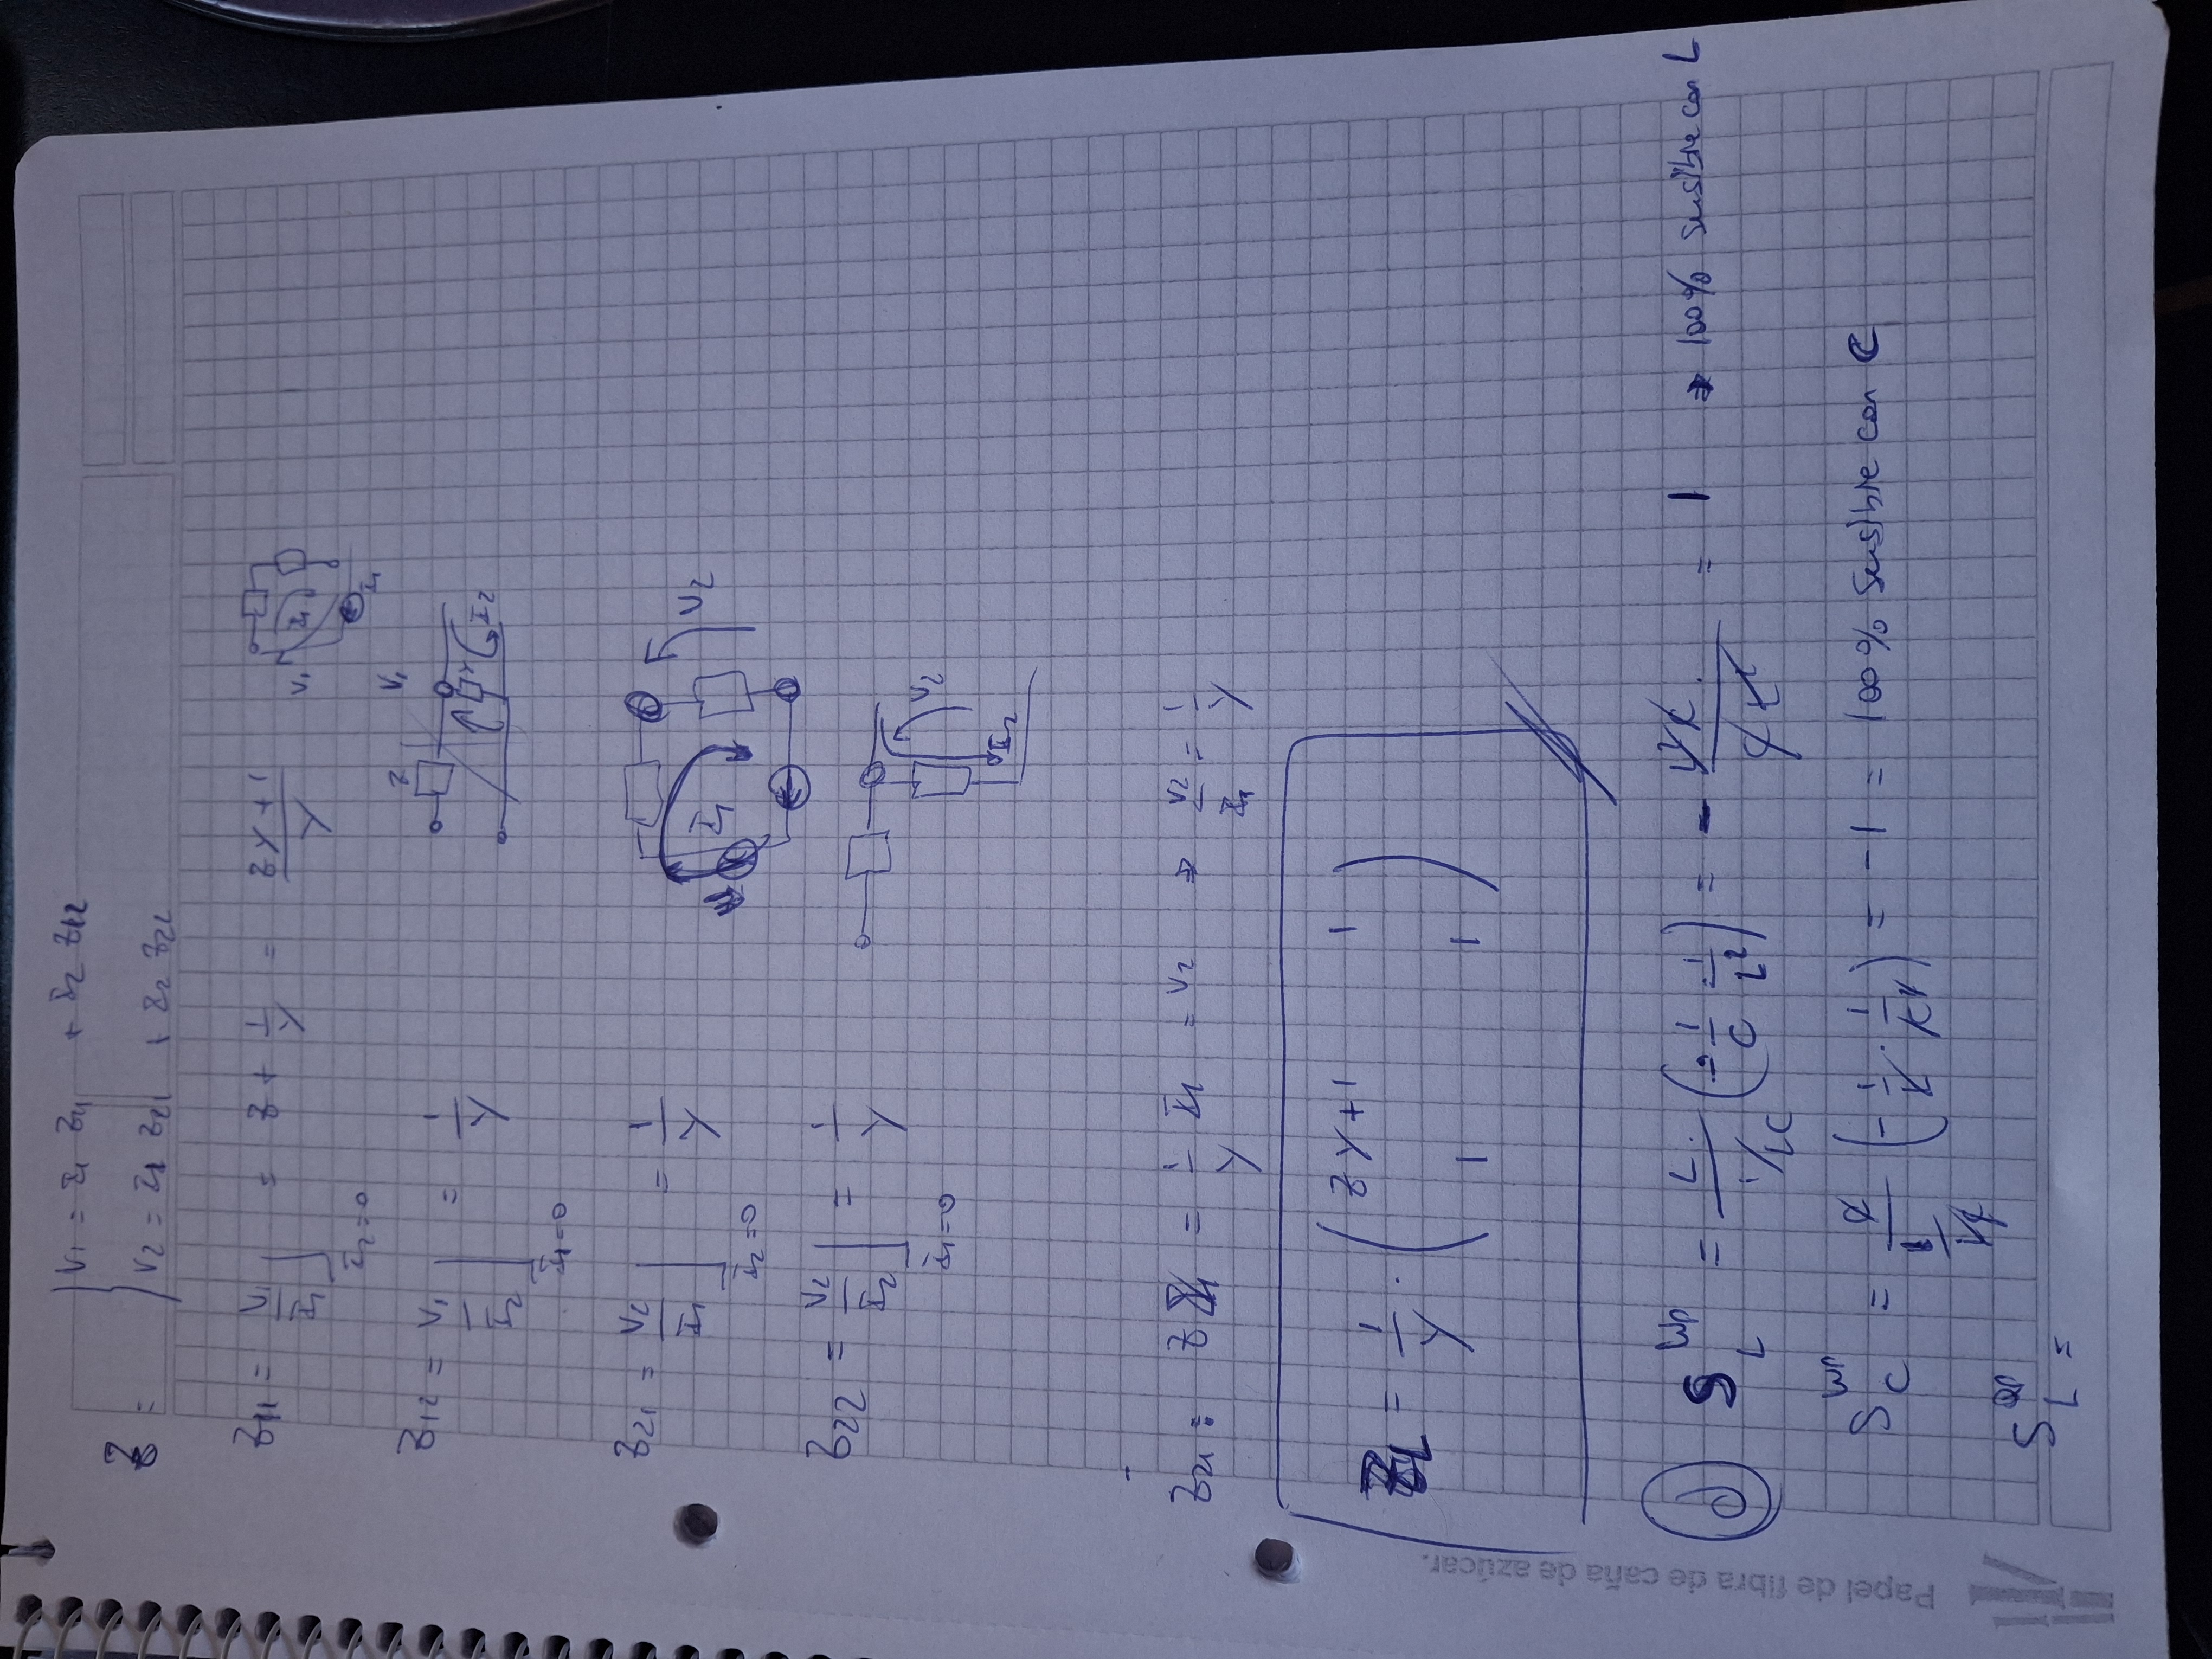 V1 = I1 Z11 + I2 Z12
Z =
V2 = I1 Z21 + I2 Z22
Z11 = V1/I1 | I2=0 = Z + 1/Y = (ZY+1)/Y
V1 I1
I1
Z12 = V1/I2 | I1=0 = 1/Y
Z V1
Y I2
Z21 = V2/I1 | I2=0 = 1/Y
I1 V2
Z22 = V2/I2 | I1=0 = 1/Y
V2
I2
Z21 : = 1/Y I1 = V2 ⇒ V2/I1 = 1/Y
= 1/Y · ( ZY+1 1
1 1 )
S L ^wp = L. / 1/LC ( - 1/C 1/L² ) = - L²C. / C L² = 1 ⇒ 100% sensible con L
S C ^wp = C / 1/LC ( - 1/L · 1/C² ) = -1 = 100% sensible con C
S L ^Qp =
Papel de fibra de caña de azúcar.